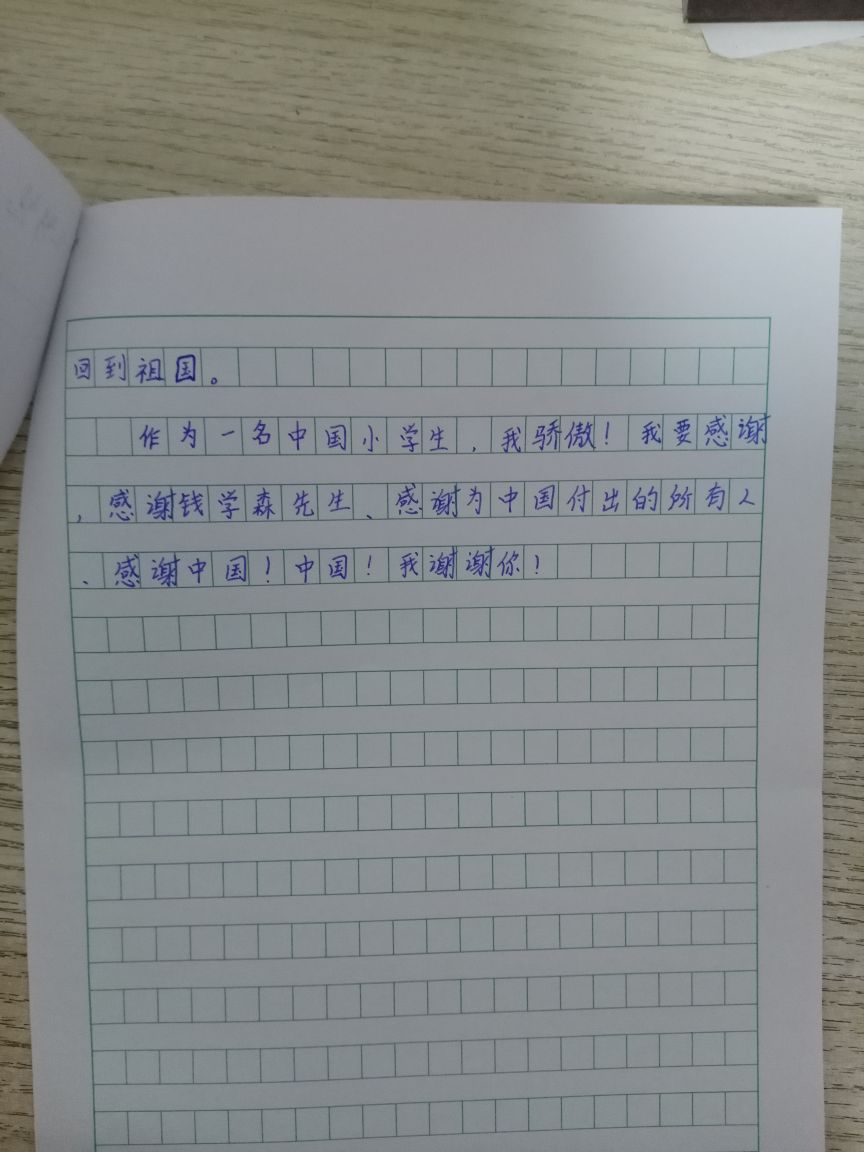 回到祖国。
作为一名中国小学生，我骄傲！我要感谢
，感谢钱学森先生、感谢为中国付出的所有人
、感谢中国！中国！我谢谢你！